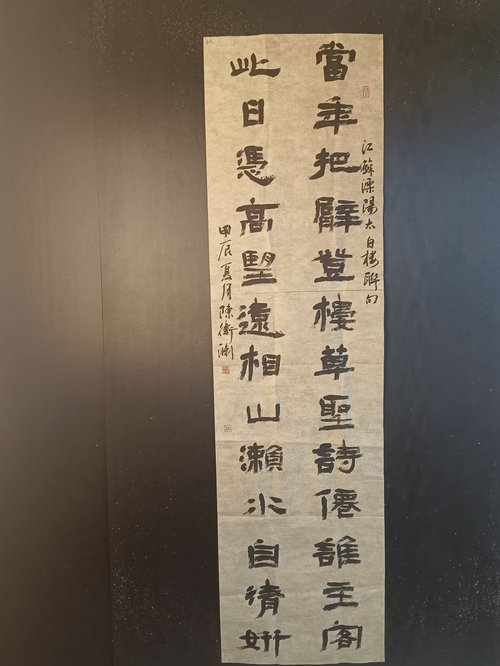 江蘇溧陽太白楼聯句
當年把臂登樓草聖詩僊誰主客
此日憑高望遠相山瀨水自清妍
甲辰夏月陳衛